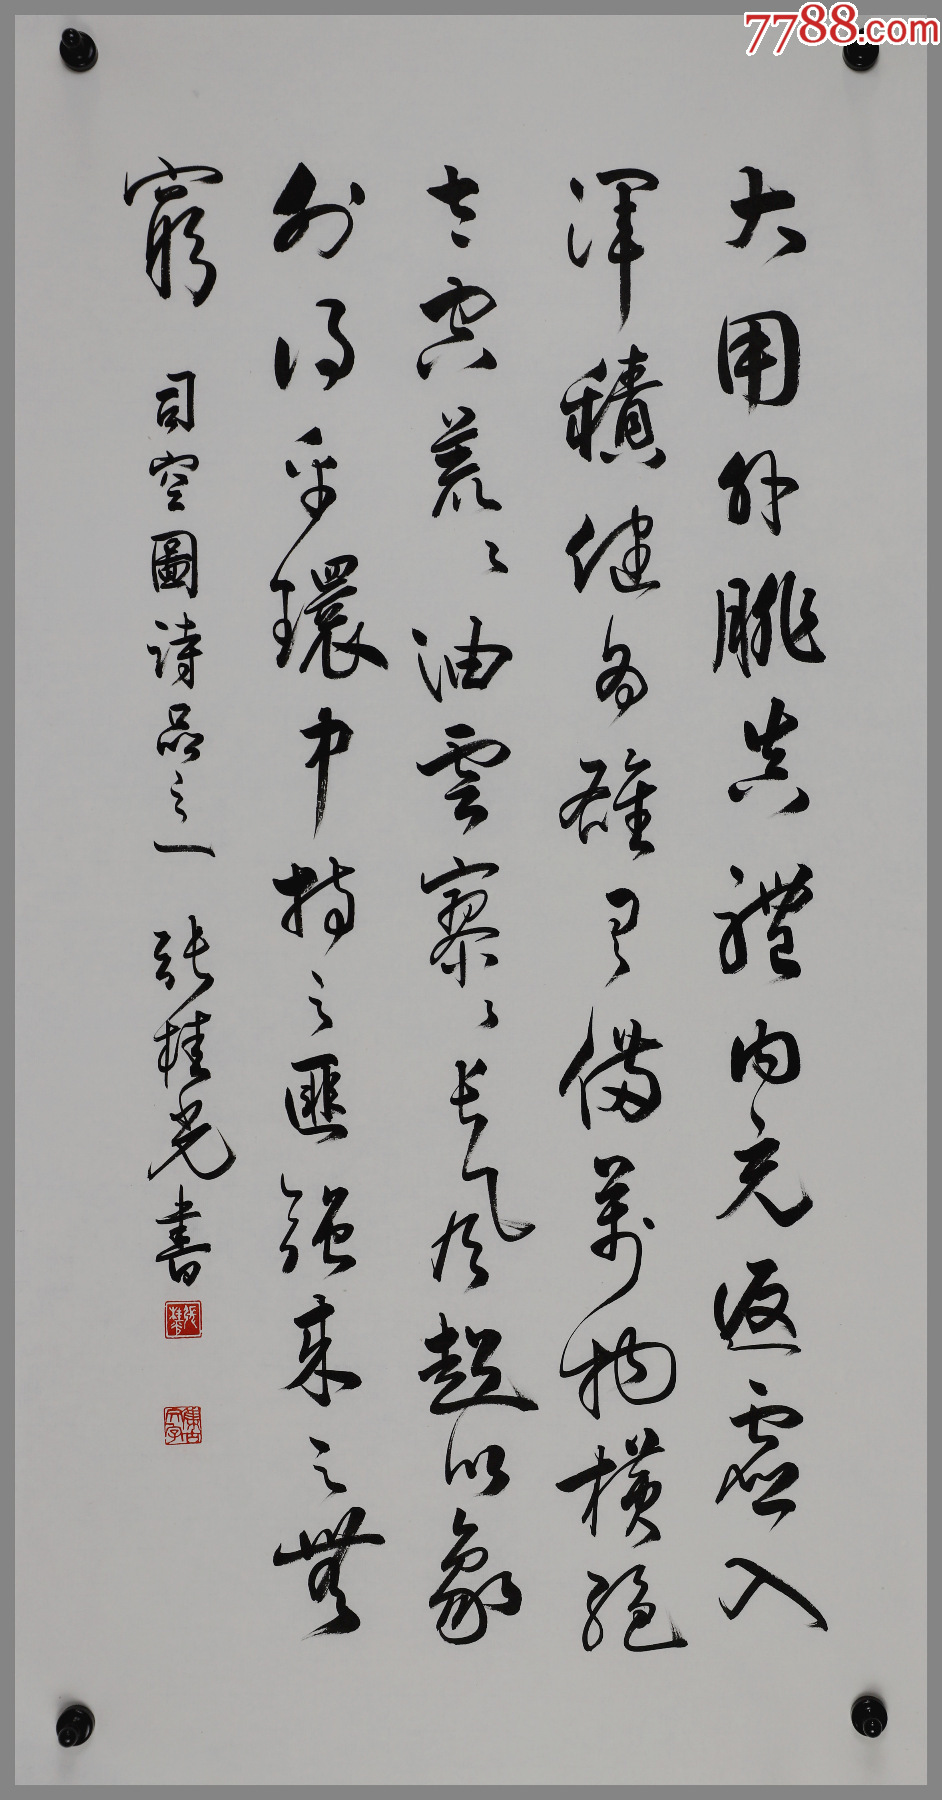 7788.com
大用外腓真體内充返虛入
渾積健為雄具備萬物橫絕
太空荒〻油雲寥〻長風超以象
外得乎環中持之匪強來之無
窮 司空圖詩品之一 張桂光書